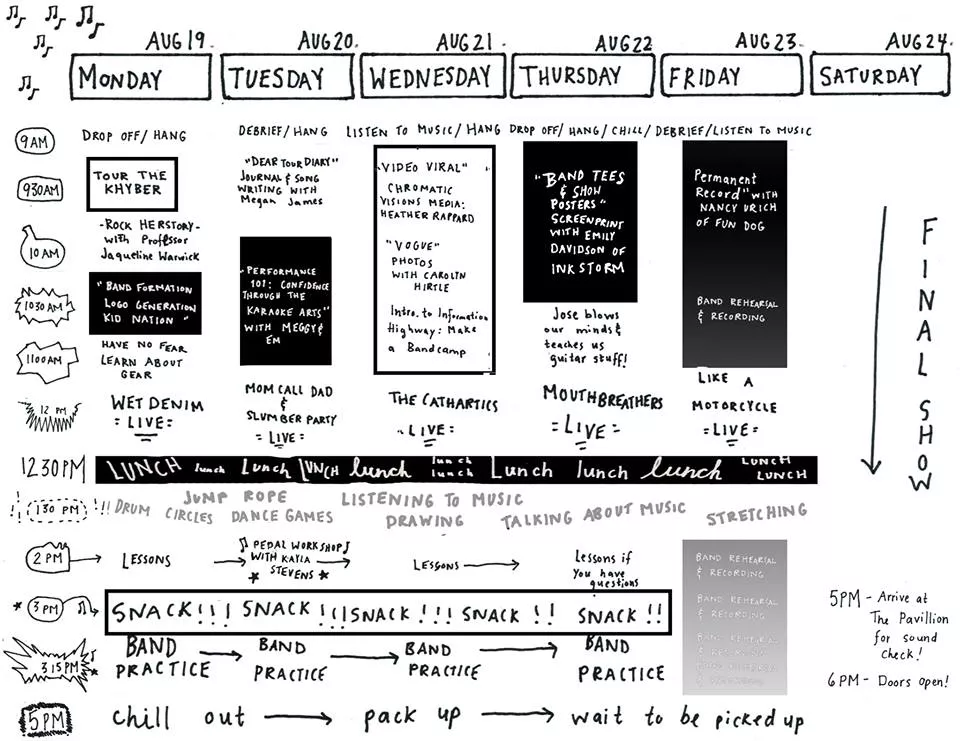 AUG 19. AUG 20. AUG 21 AUG 22 AUG 23. AUG 24.
MONDAY TUESDAY WEDNESDAY THURSDAY FRIDAY SATURDAY
9AM
DROP OFF/ HANG
DEBRIEF/ HANG
LISTEN TO MUSIC/ HANG
DROP OFF/ HANG/ CHILL/
DEBRIEF/LISTEN TO MUSIC
930AM
TOUR THE
KHYBER
"DEAR TOUR DIARY"
JOURNAL & SONG
WRITING WITH
Megan James
"VIDEO VIRAL"
CHROMATIC
VISIONS MEDIA:
HEATHER RAPPARD
"BAND TEES
& SHOW
POSTERS"
SCREENPRINT
WITH EMILY
DAVIDSON OF
INK STORM
Permanent
Record" WITH
NANCY URICH
OF FUN DOG
10 AM
-ROCK HERSTORY-
with Professor
Jaqueline Warwick
"VOGUE"
PHOTOS
WITH CAROLYN
HIRTLE
1030AM
"BAND FORMATION
LOGO GENERATION
KID NATION"
"PERFORMANCE
101: CONFIDENCE
THROUGH THE
KARAOKE ARTS"
WITH MEGGY &
EM
Intro. to Information
Highway: Make
a Bandcamp
Jose blows
our minds &
teaches us
guitar stuff!
BAND REHEARSAL
& RECORDING
1100AM
HAVE NO FEAR
LEARN ABOUT
GEAR
12 PM
WET DENIM
=LIVE=
MOM CALL DAD
&
SLUMBER PARTY
=LIVE=
THE CATHARTICS
=LIVE=
MOUTHBREATHERS
=LIVE=
LIKE A
MOTORCYCLE
=LIVE=
1230PM
LUNCH lunch Lunch LUNCH lunch lunch lunch Lunch lunch lunch LUNCH LUNCH
!! 130 PM !!
DRUM CIRCLES
JUMP ROPE
DANCE GAMES
LISTENING TO MUSIC
DRAWING
TALKING ABOUT MUSIC
STRETCHING
2PM
LESSONS
PEDAL WORKSHOP
WITH KAYLA
STEVENS
LESSONS
Lessons if
you have
questions
BAND REHEARSAL
& RECORDING
3PM
SNACK!!! SNACK!!! SNACK!!! SNACK!! SNACK!!
BAND REHEARSAL
& RECORDING
315PM
BAND
PRACTICE
BAND
PRACTICE
BAND
PRACTICE
BAND
PRACTICE
BAND REHEARSAL
& RECORDING
BAND REHEARSAL
& RECORDING
5PM
chill out pack up wait to be picked up
FINAL SHOW
5PM - Arrive at
The Pavillion
for sound
check!
6PM - Doors open!